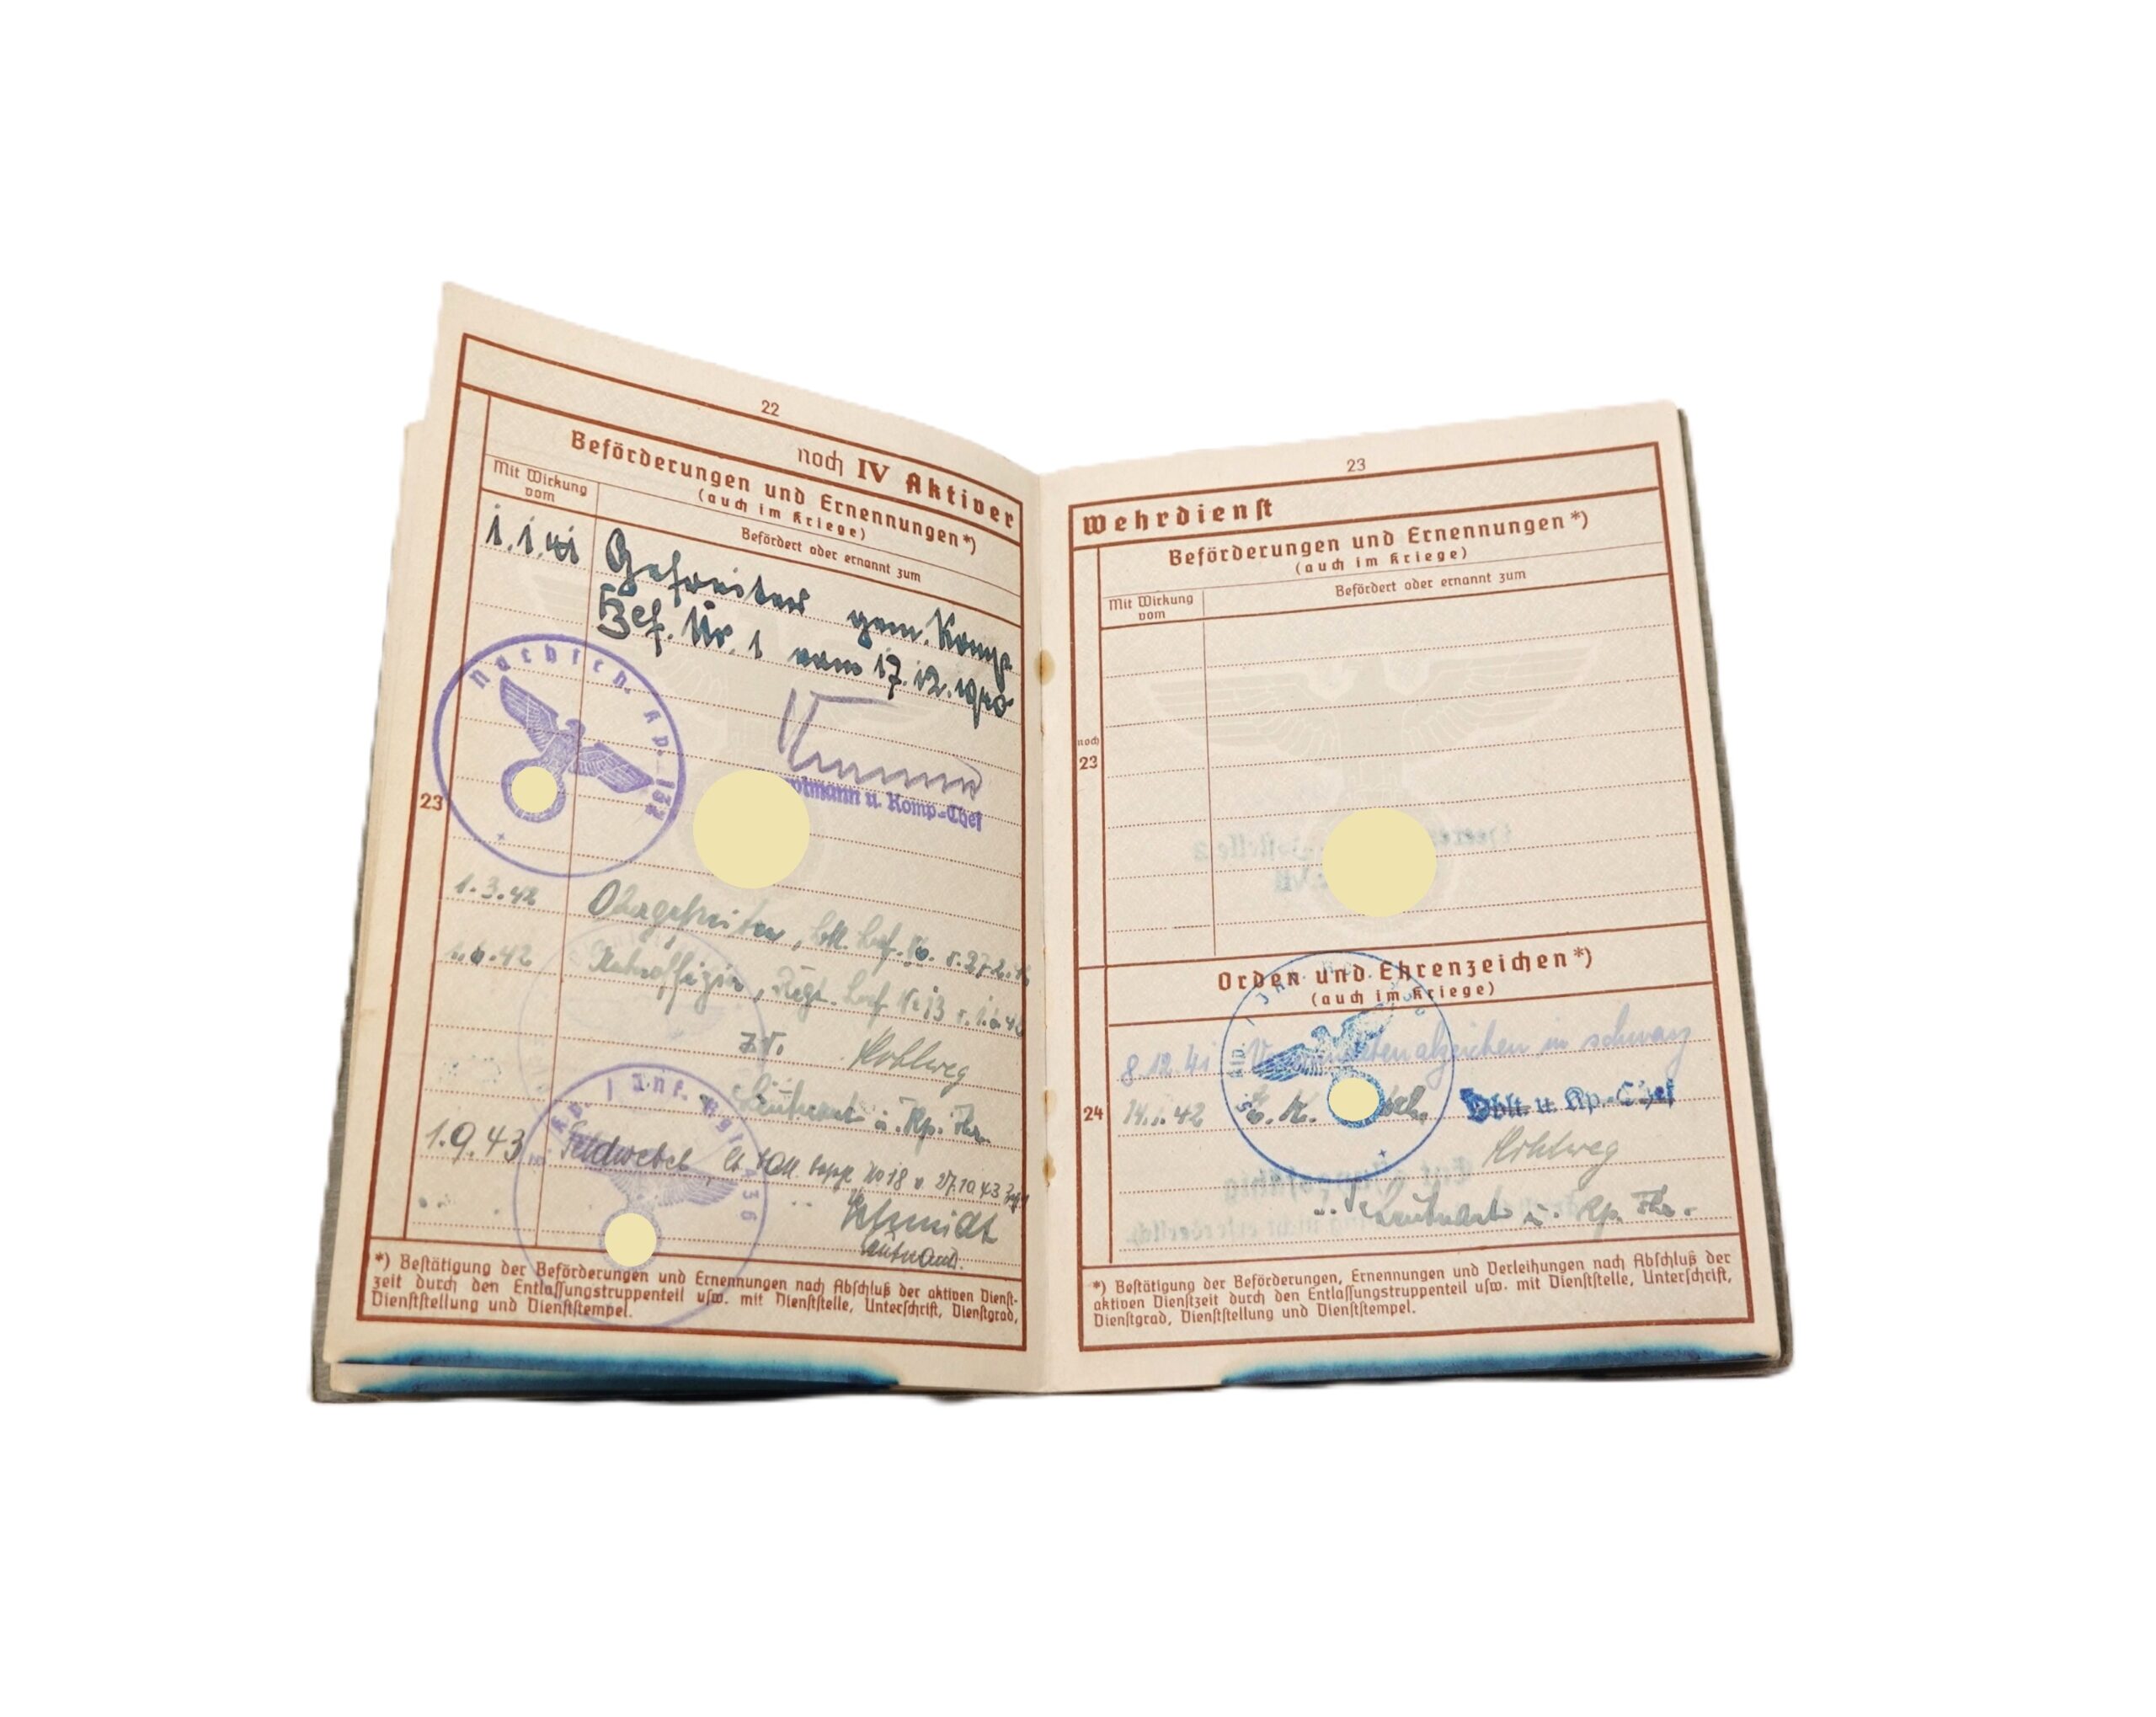 22
noch IV Aktiver
Beförderungen und Ernennungen*)
(auch im Kriege)
Mit Wirkung vom
Befördert oder ernannt zum
1.1.41 Gefreiter gem. Komp.
Bef. Nr. 1 vom 17.12.1940
Nachrich. Kp. 132
u. Komp-Chef
23
1.3.42 Obergefreiter,
1.6.42 Unteroffizier, Regt.
Hohlweg
Leutnant u. Kp. Fhr.
Kp. / Inf. Regt. 436
1.9.43 Feldwebel 27.10.43
Schmidt
Leutnant
*) Bestätigung der Beförderungen und Ernennungen nach Abschluß der aktiven Dienst-
zeit durch den Entlassungstruppenteil usw. mit Dienststelle, Unterschrift, Dienstgrad,
Dienststellung und Dienststempel.
23
Wehrdienst
Beförderungen und Ernennungen*)
(auch im Kriege)
Mit Wirkung vom
Befördert oder ernannt zum
noch 23
Orden und Ehrenzeichen*)
(auch im Kriege)
8.12.41 in schwarz
24
14.1.42 E. K. Oblt. u. Kp.-Chef
Hohlweg
Leutnant u. Kp. Fhr.
*) Bestätigung der Beförderungen, Ernennungen und Verleihungen nach Abschluß der
aktiven Dienstzeit durch den Entlassungstruppenteil usw. mit Dienststelle, Unterschrift,
Dienstgrad, Dienststellung und Dienststempel.